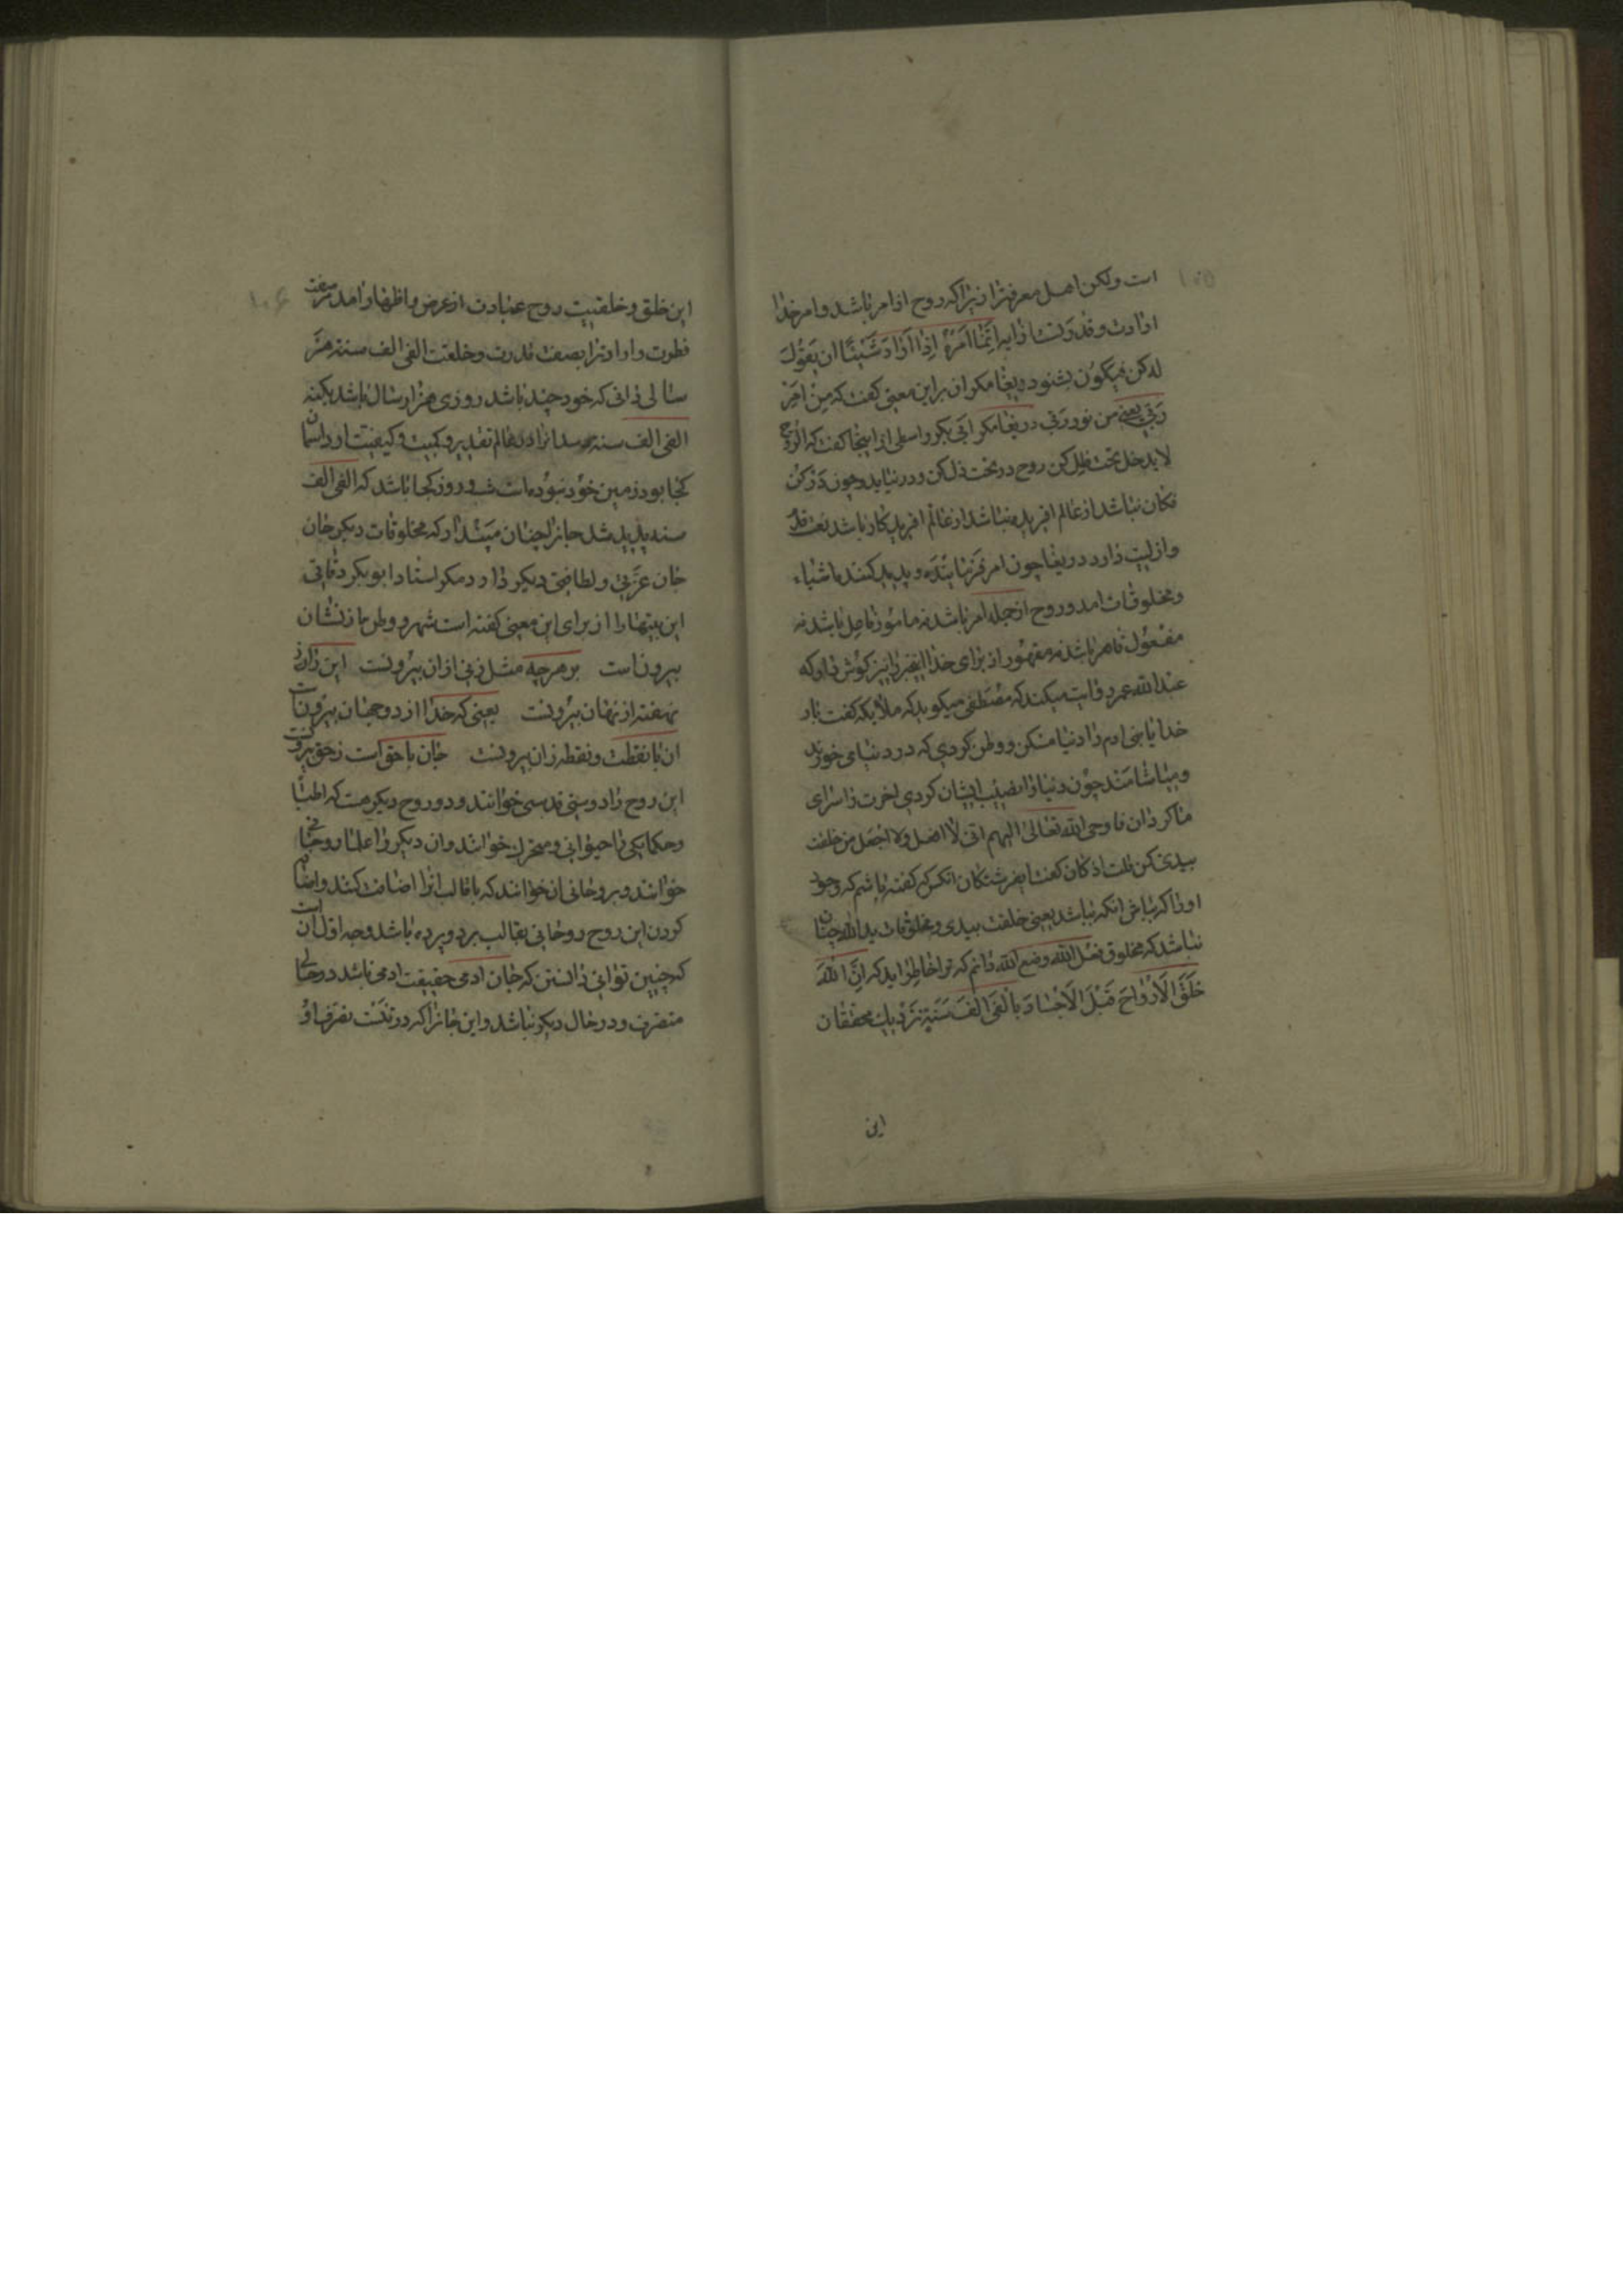 ۱۰۵
است ولکن اهل معرفترا زیراکه روح از امر باشد و امر خدا
ارادت و قدرتست زایرا انما امره اذا اراد شیئا ان یقول
له کن فیکون بشنو دریغا مکر ان بر این معنی کفت که من امر
ربی یعنی من نور ربی دریغا مکر ابی بکر واسطی از اینجا کفت که الروح
لا یدخل تحت ظل کن روح در تحت ذل کن و در نیاید و چون در کن
فکان نباشد از عالم افریده نباشد از عالم افریدکار باشد نعت قدم
و ازلیت دارد دریغا چون امر فرماینده و پدید کننده اشیاء
و مخلوقات امد و روح از جمله امر باشد نه مامور فاعل باشد نه
مفعول قاهر باشد نه مقهور از برای خدا این خبر را نیز کوش دار که
عبدالله عمر روایت میکند که مصطفی میکوید که ملایکه کفت بار
خدایا بنی ادم را دنیا مسکن و وطن کردی که در دنیا می خورند
و میاشامند چون دنیا را نصیب ایشان کردی اخرت را سرای
ما کردان فاوحی الله تعالی الیهم انی لا افعل ولا اجعل من خلقت
بیدی کمن قلت له کن فکان کفت ای فرشتکان انکس که کفته باشم که وجود
او را که باش انکه باشد یعنی خلقت بیدی و مخلوقات ید الله چنان
نباشد که مخلوق فعل الله و صنع الله دانم که ترا خاطر اید که ان الله
خلق الارواح قبل الاجساد بالفی الف سنة نزدیک محققان
این
۱۰۶
این خلق و خلقیت روح عبارت از عرض و اظهار امد بر صفت
فطرت و ارادت را بصفت قدرت و خلعت الفی الف سنة هر
سالی دانی که خود چند باشد روزی هزار سال باشد بکفته
الفی الف سنة مدانرا در عالم تقدیر و کمیت و کیفیت ارد اسمان
کجا بود زمین خود نبوده است شب و روز کجا باشد که الفی الف
سنه پدید شد جانرا چنان میندار که مخلوقات دیکر جان
جان عزتی و لطافتی دیکر دارد مکر استاد ابو بکر دقاق
این بیتها را از برای این معنی کفته است شهر و وطن جان ز نشان
بیرون است بر هر چه مثل زنی ازان بیرونست این راز
نهفته از نهان بیرونست یعنی که خدا از دو جهان بیرونست
ان با نقطت و نقطه زان بیرونست جان با حق است و حق بیرونست
این روح را دوستی قدسی خوانند و دو روح دیکر هست که اطبا
و حکما یکی را حیوانی و متحرک خوانند و ان دیکر را علما روحانی
خوانند و روحانی ان خوانند که با قالب انرا اضافت کنند و اضافه
کردن این روح روحانی بقالب بر دو پرده باشد وجه اول ان است
که چنین توانی دانستن که جان ادمی حقیقت ادمی باشد در حالی
متصرف و در حال دیکر نباشد و این جانرا که در تنست تصرف او